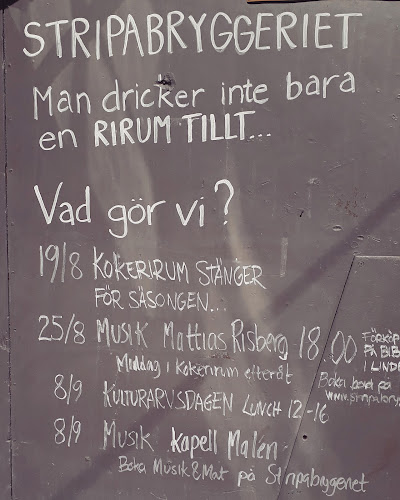 STRIPABRYGGERIET
Man dricker inte bara
en RIRUM TILLT...
Vad gör vi?
19/8 KOKERIRUM STÄNGER
FÖR SÄSONGEN...
25/8 MUSIK MATTIAS RISBERG 18.00
Middag i Kokerirum efteråt
FÖRKÖP
PÅ BIB
I LINDE
Boka bord på
www.stripabryg
8/9 KULTURARVSDAGEN LUNCH 12-16
8/9 MUSIK Kapell Malen
Boka Musik & Mat på Stripabryggeriet